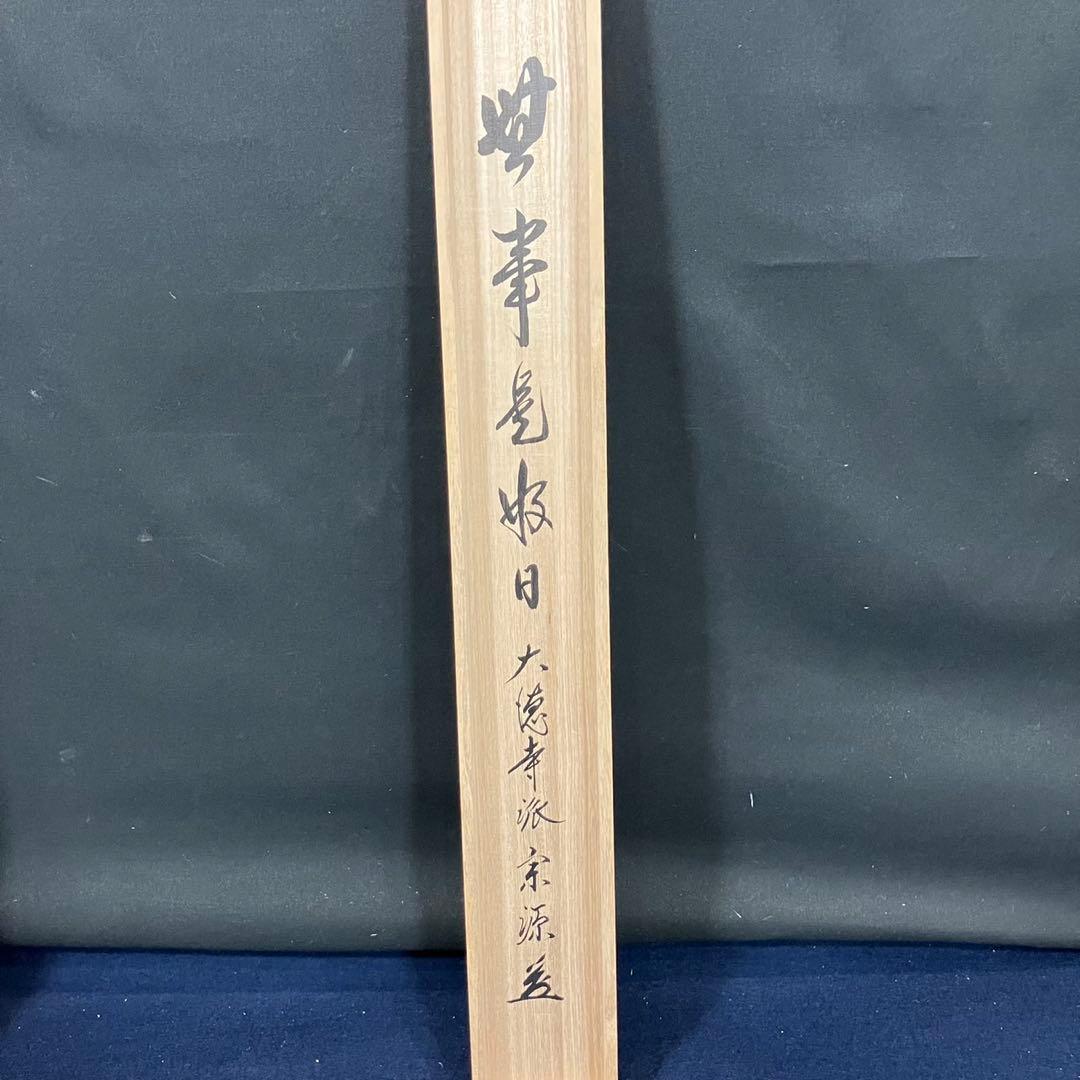 無事是好日 大徳寺派宗源